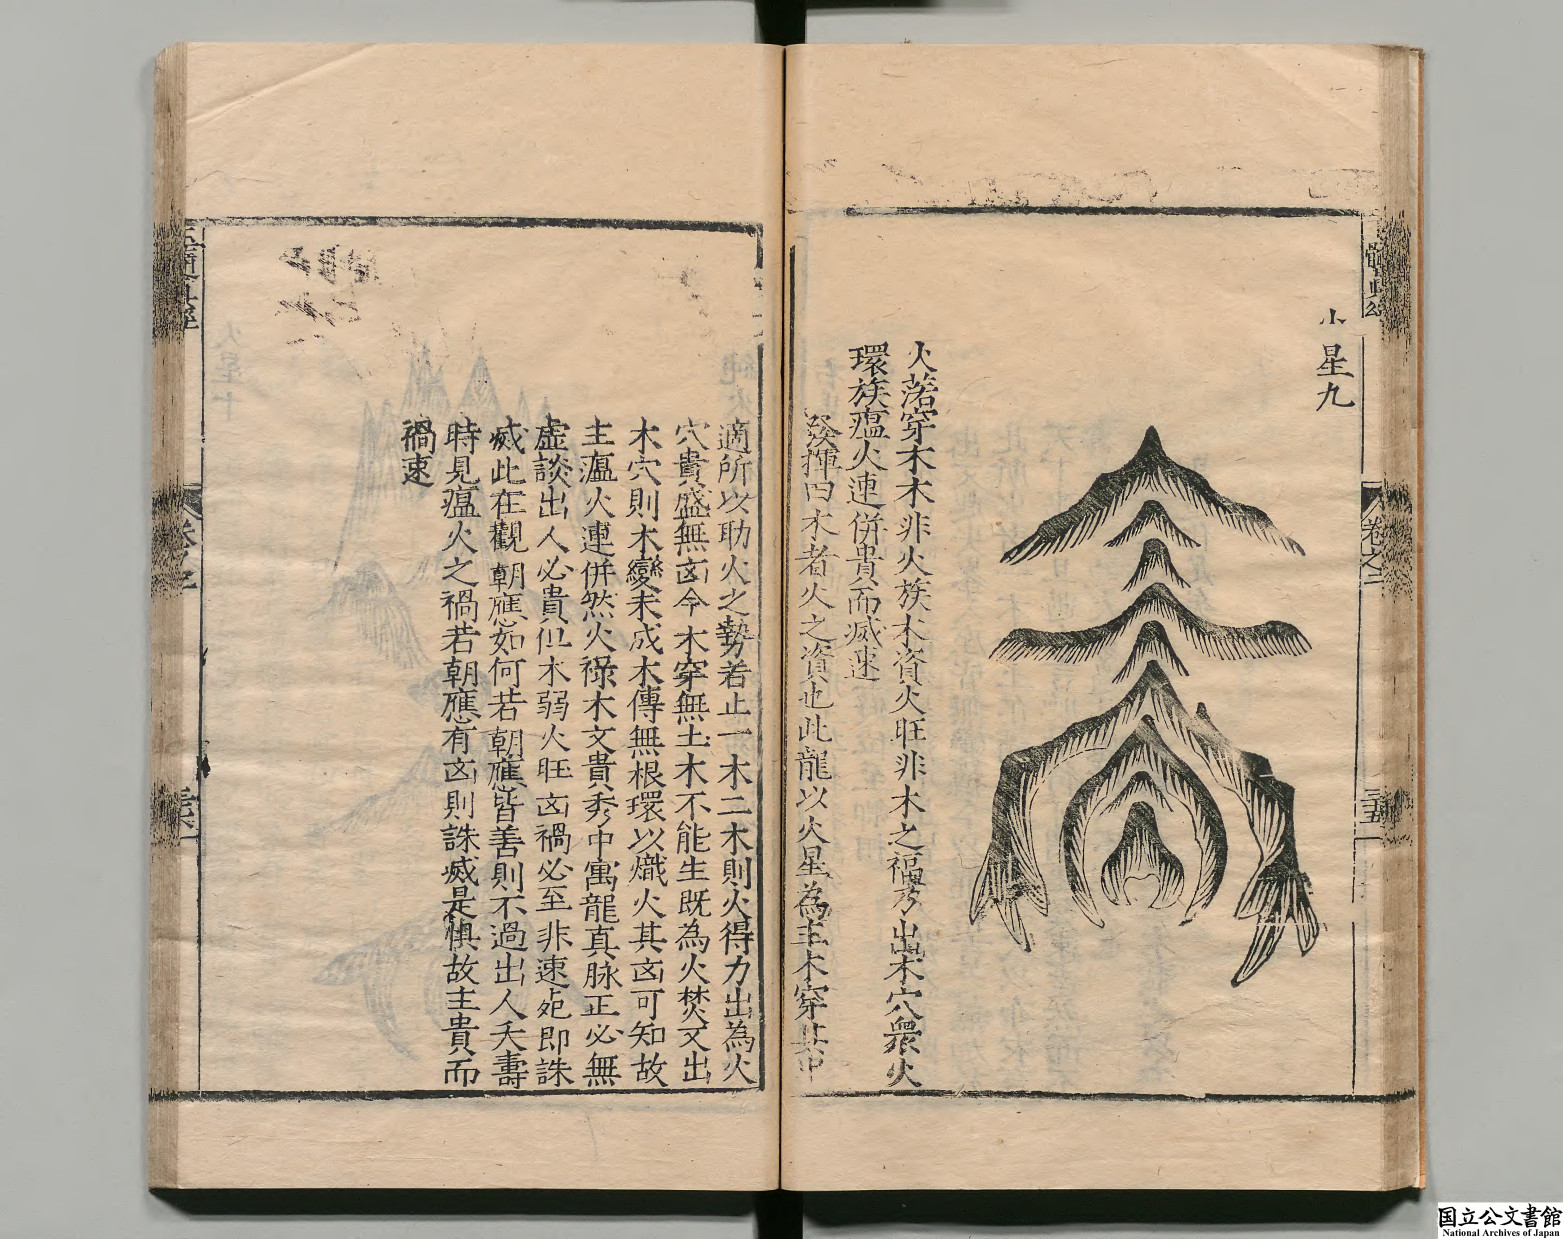 小星九
火若穿木木非火族木資火旺非木之福彡出木穴衆火
環族瘟火連併貴而烕速
發揮曰木者火之資也此龍以火星為主木穿其中
適所以助火之勢若止一木二木則火得力出為火
穴貴盛無凶今木穿無土木不能生既為火焚又出
木穴則木變未成木傳無根環以熾火其凶可知故
主瘟火連併然火祿木文貴秀中寓龍真脉正必無
虛談出人必貴但木弱火旺凶禍必至非速死即誅
烕此在觀朝應如何若朝應皆善則不過出人夭壽
時見瘟火之禍若朝應有凶則誅烕是惧故主貴而
禍速
卷之二
三五
国立公文書館
National Archives of Japan